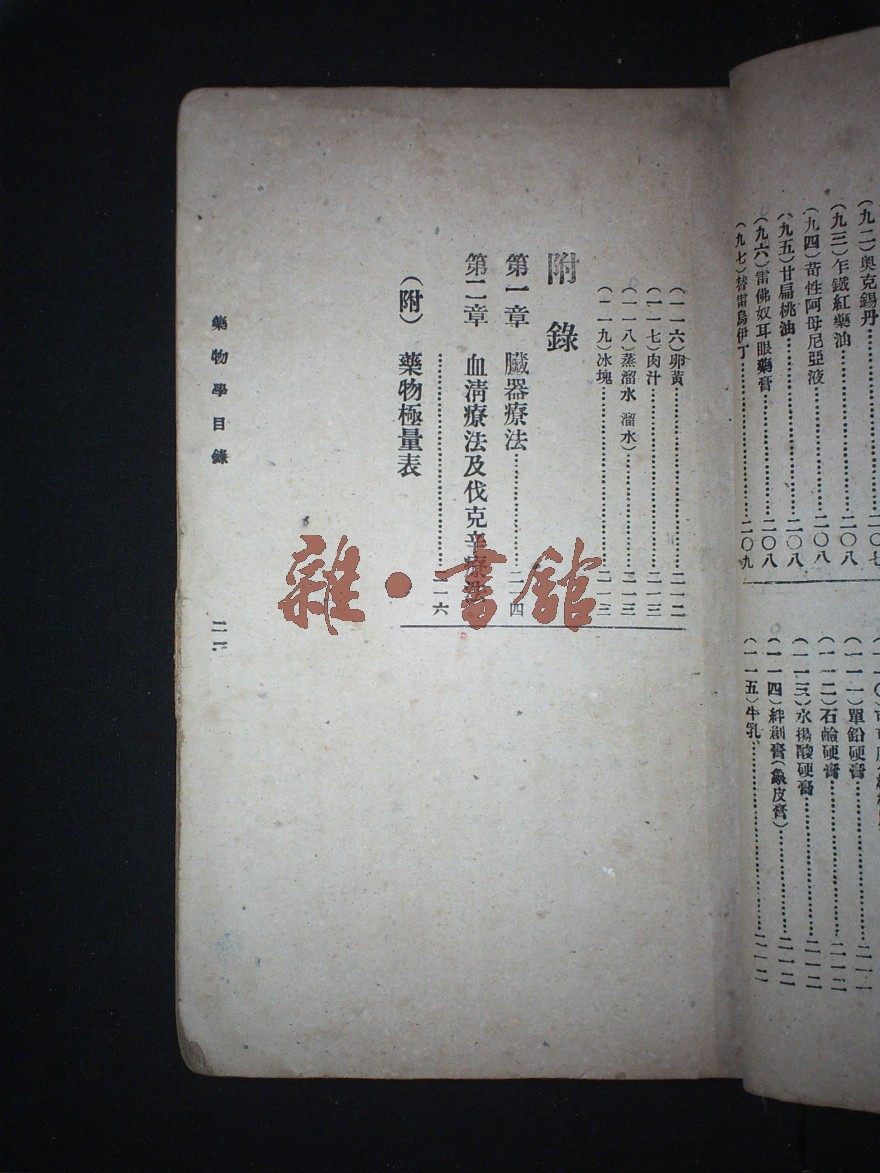 (九二)奧克錫丹……二〇七
(九三)乍鐵紅藥油……二〇八
(九四)苛性阿母尼亞液……二〇八
(九五)甘扁桃油……二〇八
(九六)雷佛奴耳眼藥膏……二〇八
(九七)替雷烏伊丁……二〇九
(一一一)單鉛硬膏……二一一
(一一二)石鹼硬膏……二一二
(一一三)水楊酸硬膏……二一二
(一一四)絆創膏(象皮膏)……二一二
(一一五)牛乳……二一二
(一一六)卵黃……二一二
(一一七)肉汁……二一三
(一一八)蒸溜水 溜水)……二一三
(一一九)冰塊……二一三
附錄
第一章 臟器療法……二一四
第二章 血清療法及伐克辛療法
……二一六
(附) 藥物極量表
藥物學目錄
雜·書館